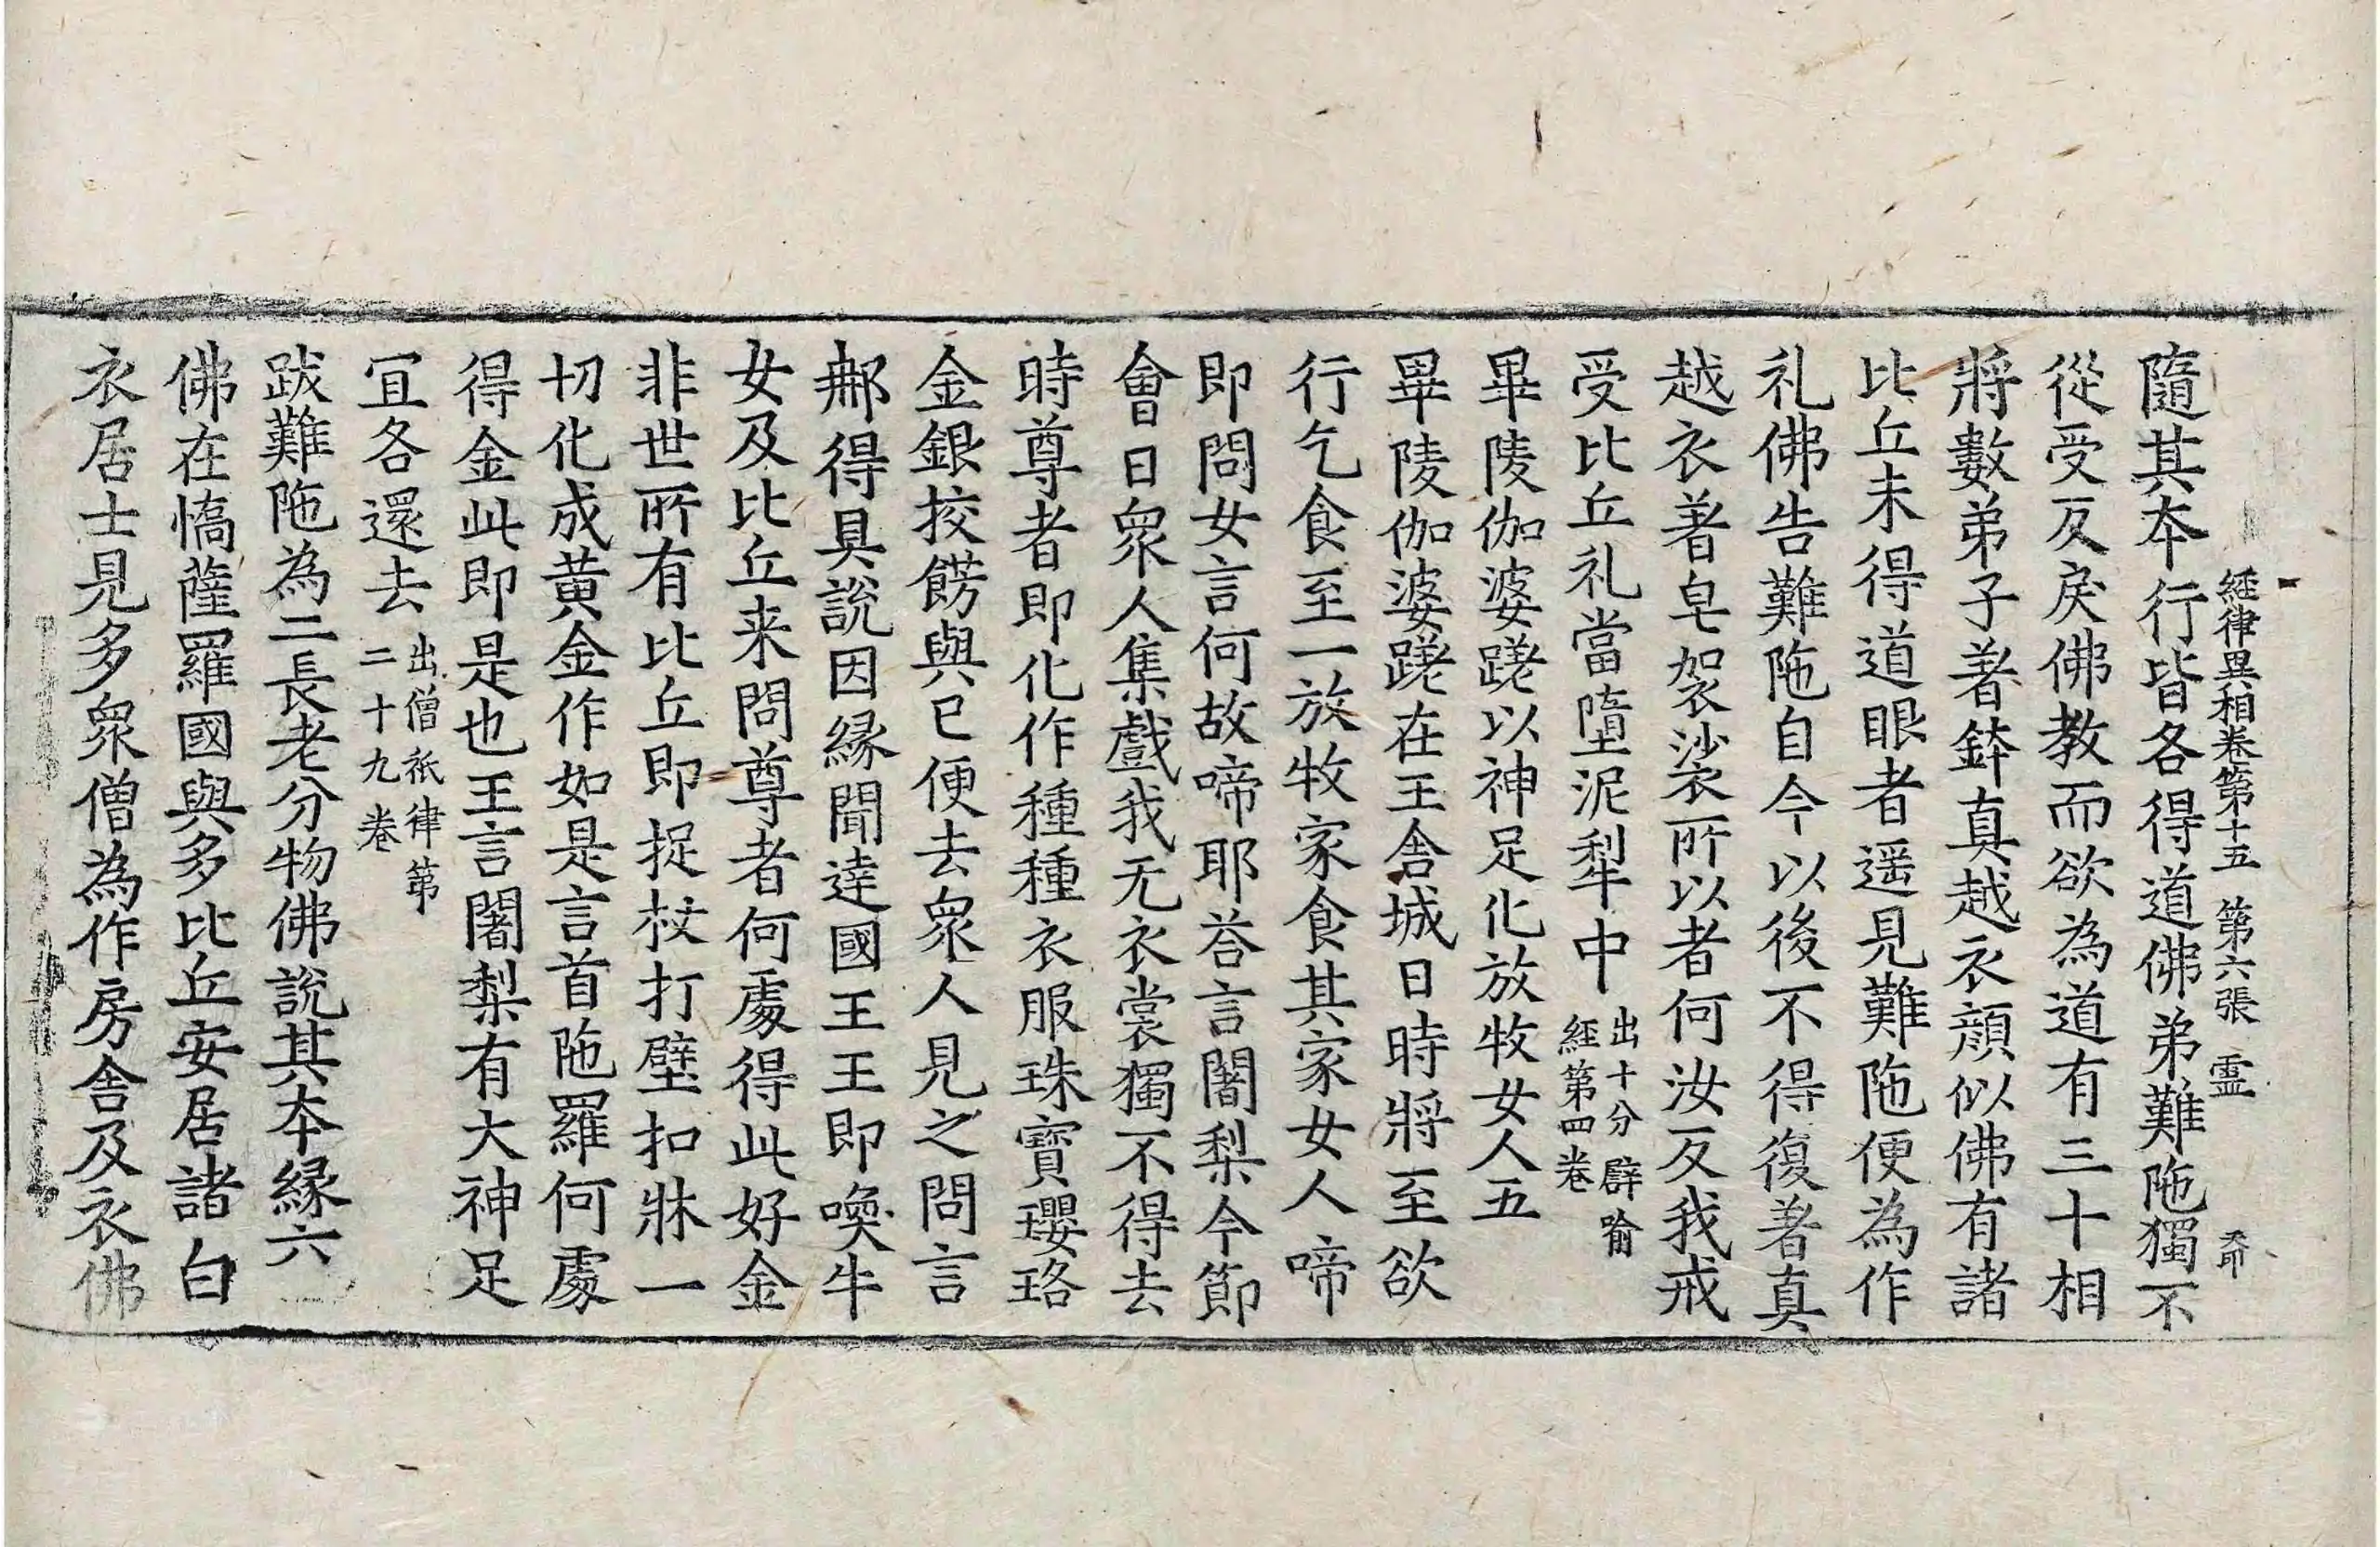 經律異相卷第十五 第六張 霊
隨其夲行皆各得道佛弟難陁獨不
從受反戾佛教而欲為道有三十相
將數弟子著鉢真越衣顔似佛有諸
比丘未得道眼者遥見難陁便為作
礼佛告難陁自今以後不得復著真
越衣著皂袈裟所以者何汝反我戒
受比丘礼當墮泥犁中出十分辟喻
經第四卷
畢陵伽婆蹉以神足化放牧女人五
畢陵伽婆蹉在王舎城日時將至欲
行乞食至一放牧家食其家女人啼
即問女言何故啼耶荅言闍梨今節
會日眾人集戲我无衣裳獨不得去
時尊者即化作種種衣服珠寳瓔珞
金銀挍餝與已便去眾人見之問言
那得具說因縁聞達國王王即喚牛
女及比丘来問尊者何處得此好金
非世所有比丘即捉杖打壁扣牀一
切化成黄金作如是言首陁羅何處
得金此即是也王言闍梨有大神足
冝各還去出僧祇律第
二十九卷
跋難陁為二長老分物佛說其夲縁六
佛在憍薩羅國與多比丘安居諸白
衣居士見多眾僧為作房舎及衣佛